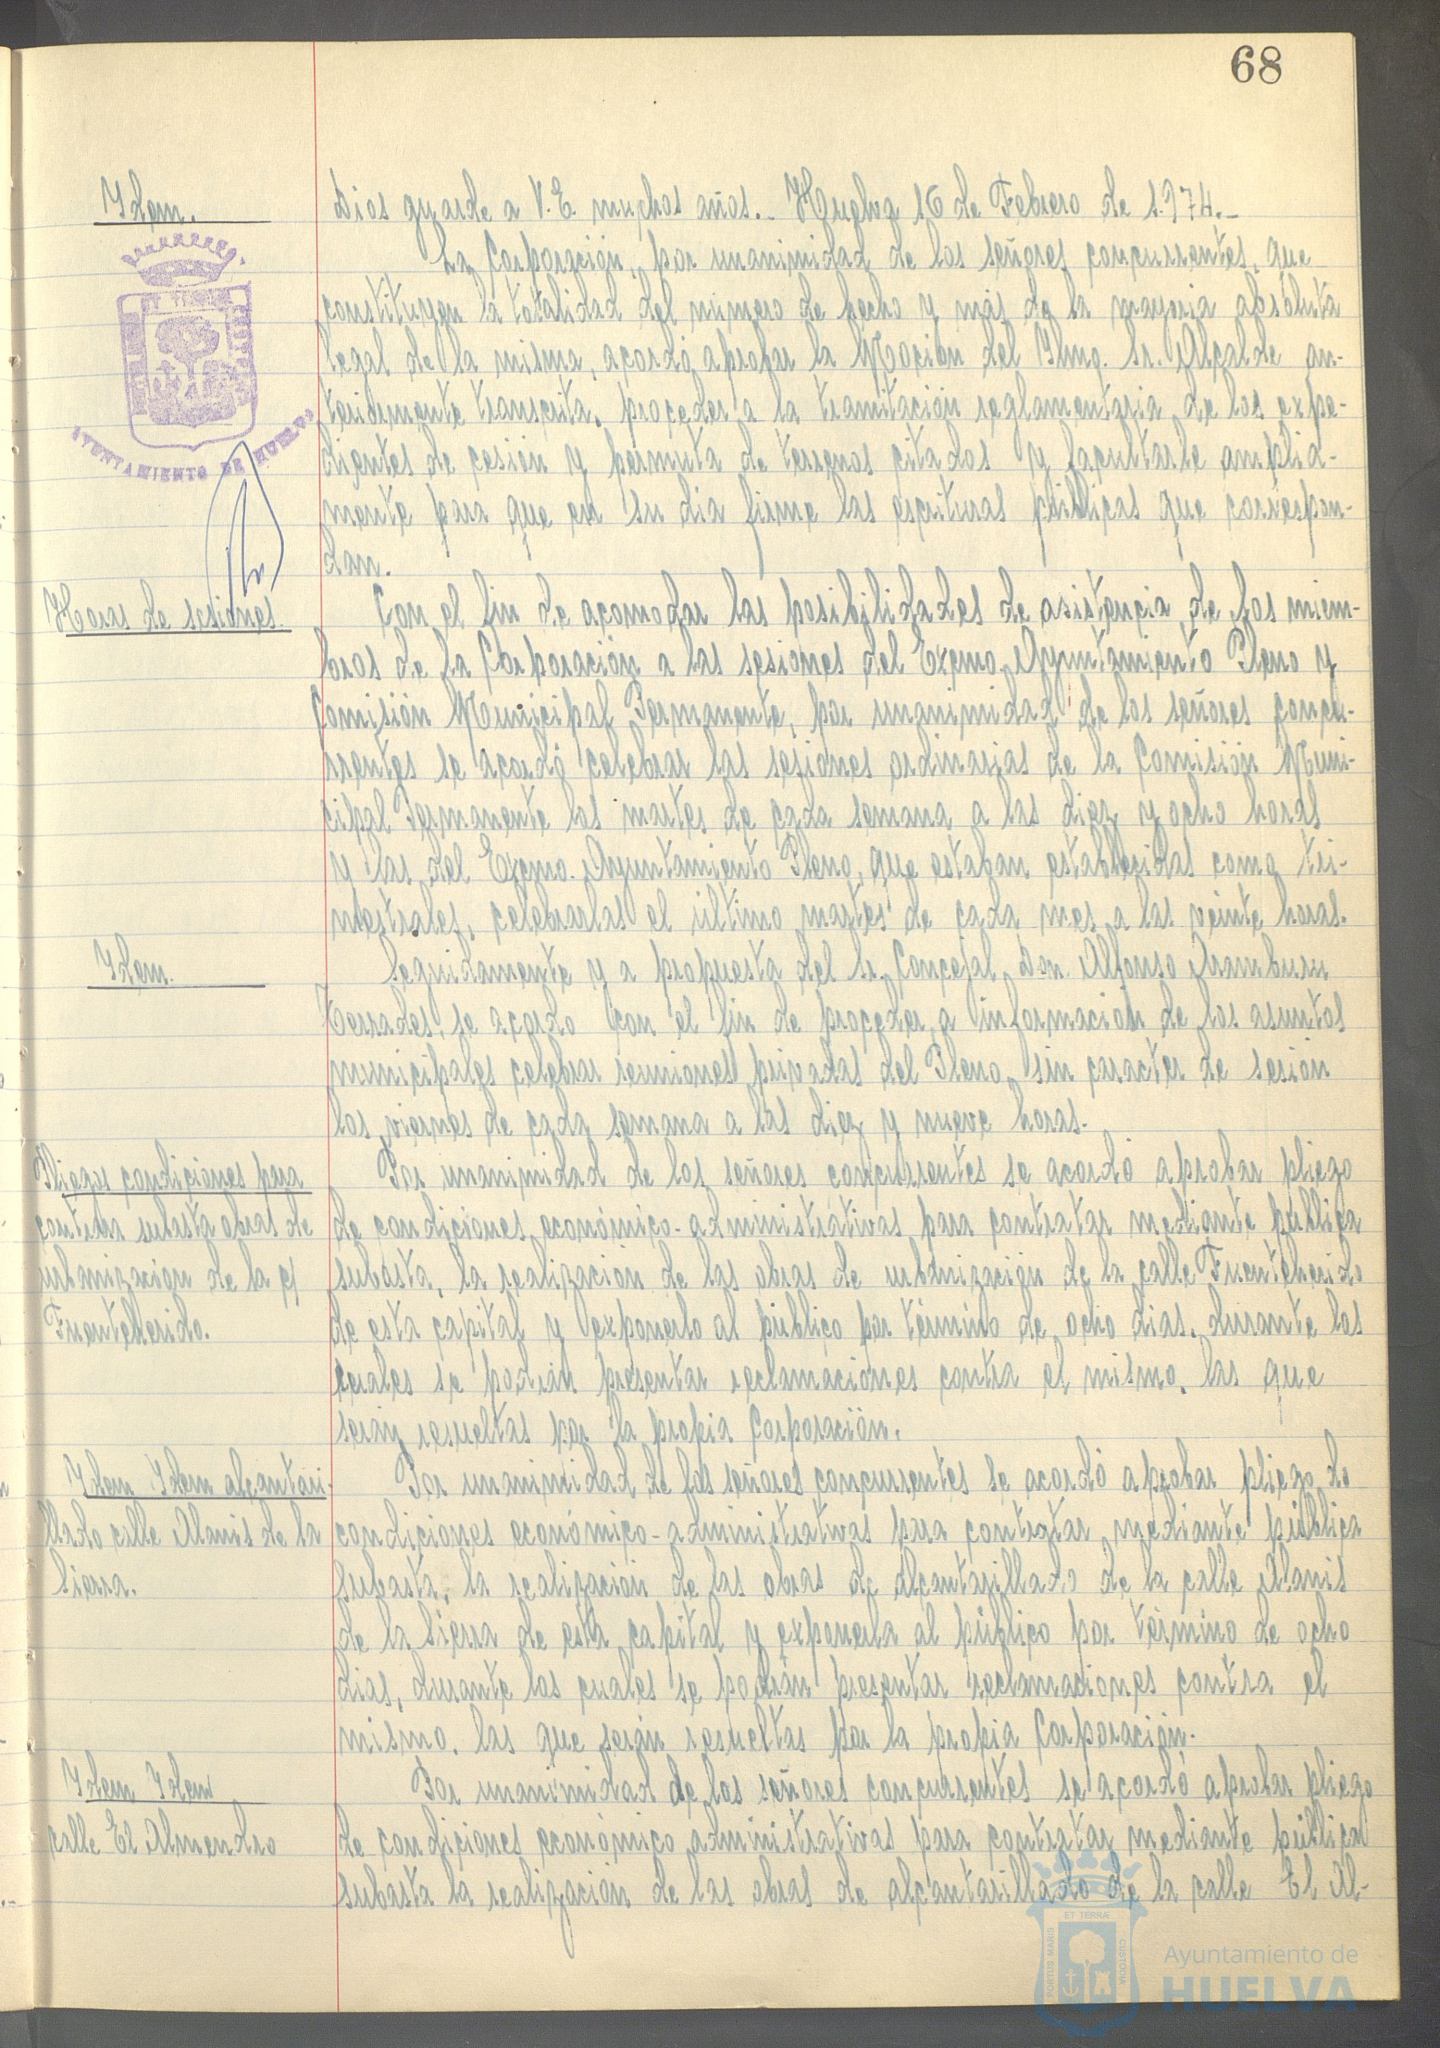 68
Idem.
Dios guarde a V.E. muchos años.- Huelva 16 de Febrero de 1.974.-
La Corporación, por unanimidad de los señores concurrentes, que
constituyen la totalidad del número de hecho y más de la mayoria absoluta
legal de la misma, acordó aprobar la Moción del Iltmo. Sr. Alcalde an-
teriormente transcrita, proceder a la tramitación reglamentaria de los expe-
dientes de cesión y permuta de terrenos citados y facultarle amplia-
mente para que en su dia firme las escrituras públicas que correspon-
dan.
AYUNTAMIENTO DE HUELVA
Horas de sesiones.
Con el fin de acomodar las posibilidades de asistencia de los miem-
bros de la Corporación a las sesiones del Excmo. Ayuntamiento Pleno y
Comisión Municipal Permanente, por unanimidad de los señores concu-
rrentes se acordó celebrar las sesiones ordinarias de la Comisión Muni-
cipal Permanente los martes de cada semana a las diez y ocho horas
y las del Excmo. Ayuntamiento Pleno, que estaban establecidas como tri-
mestrales, celebrarlas el último martes de cada mes a las veinte horas.
Idem.
Seguidamente y a propuesta del Sr. Concejal Don Alfonso Aramburu
Terrades, se acordo con el fin de proceder a información de los asuntos
municipales celebrar reuniones privadas del Pleno, sin caracter de sesión
los viernes de cada semana a las diez y nueve horas.
Pliegos condiciones para
contratar subasta obras de
urbanización de la c/
Fuenteherido.
Por unanimidad de los señores concurrentes se acordó aprobar pliego
de condiciones económico-administrativas para contratar mediante pública
subasta, la realización de las obras de urbanización de la calle Fuenteherido
de esta capital y exponerlo al público por término de ocho dias, durante los
cuales se podrán presentar reclamaciones contra el mismo, las que
serán resueltas por la propia Corporación.
Idem Idem alcantari-
llado calle Alanis de la
Sierra.
Por unanimidad de los señores concurrentes se acordó aprobar pliego de
condiciones económico-administrativas para contratar mediante pública
subasta, la realización de las obras de alcantarillado de la calle Alanis
de la Sierra de esta capital y exponerla al público por término de ocho
dias, durante los cuales se podrán presentar reclamaciones contra el
mismo, las que serán resueltas por la propia Corporación.
Idem Idem
calle El Almendro
Por unanimidad de los señores concurrentes se acordó aprobar pliego
de condiciones económico administrativas para contratar mediante pública
subasta la realización de las obras de alcantarillado de la calle El Al-
ET TERRÆ
PORTUS MARIS
CUSTODIA
Ayuntamiento de
HUELVA